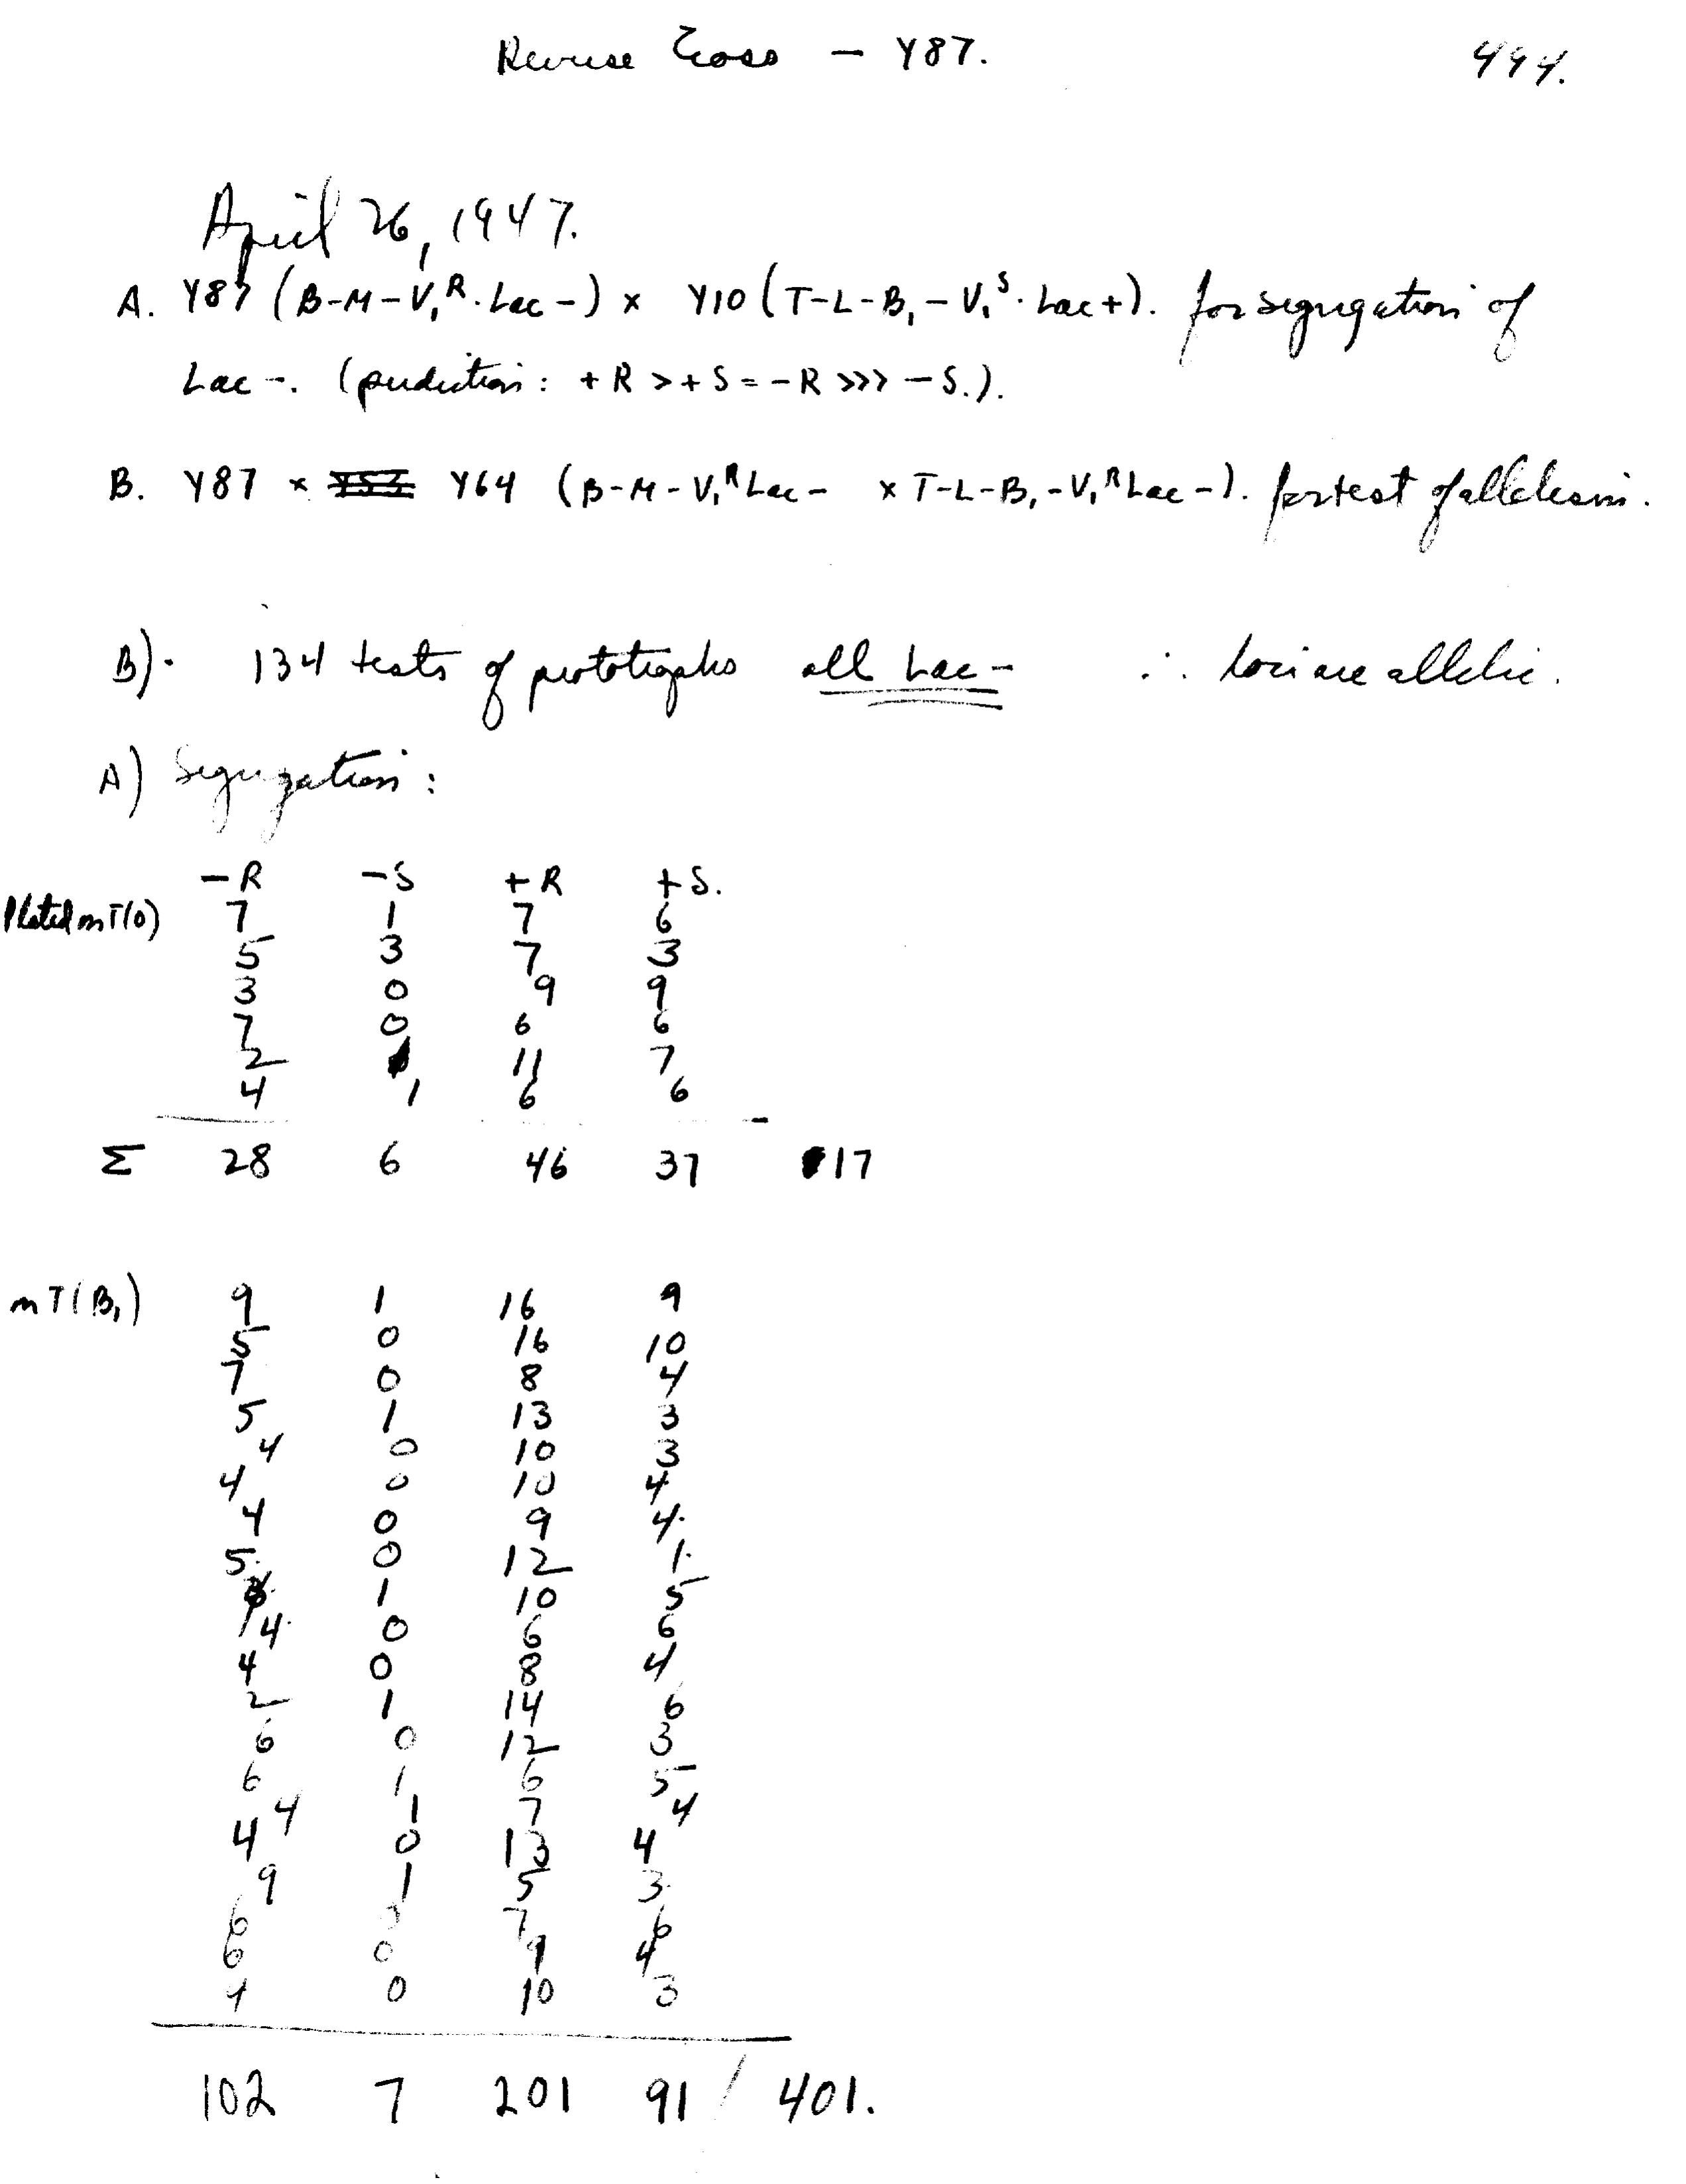 Reverse Cross – Y87. 494.
April 26, 1947.
A. Y87 (B-M-V₁ᴿ·Lac-) x Y10 (T-L-B₁-V₁ˢ·Lac+). for segregation of
Lac-. (prediction: +R > +S = -R >>> -S.).
B. Y87 x Y64 (B-M-V₁ᴿLac- x T-L-B₁-V₁ᴿLac-). for test of allelism.
B). 134 tests of prototrophs all Lac- ∴ loci are allelic.
A) Segregation:
-R -S +R +S.
Plated on T(0) 7 1 7 6
5 3 7 3
3 0 9 9
7 0 6 6
2 1 11 7
4 1 6 6
Σ 28 6 46 37 117
on T(B₁) 9 1 16 9
5 0 16 10
7 0 8 4
5 1 13 3
4 0 10 3
4 0 10 4
4 0 9 4.
5. 0 12 1.
1 10 5
4. 0 6 6
4 0 8 4
2 1 14 6
6 0 12 3
6 1 6 5
4 1 7 4
4 0 13 4
9 1 5 3
6 7 6
6 0 9 4
4 0 10 3
102 7 201 91 / 401.